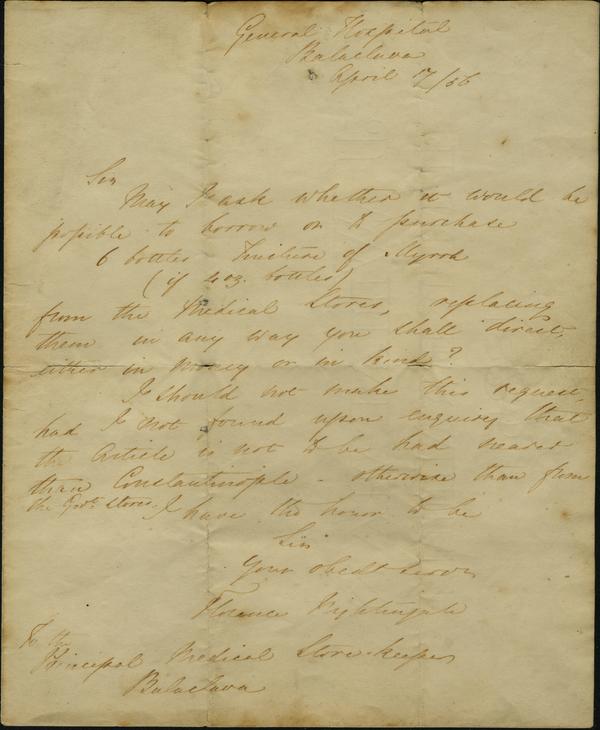 General Hospital
Balaclava
April 17/56
Sir
May I ask whether it would be
possible to borrow or to purchase
6 bottles Tincture of Myrrh
(if 4 oz. bottles)
from the Medical Stores, replacing
them in any way you shall direct,
either in money or in kind?
I should not make this request,
had I not found upon enquiry that
the Article is not to be had nearer
than Constantinople - otherwise than from
the Govt. Stores.
I have the honor to be
Sir
Your obedt Servt
Florence Nightingale
To the
Principal Medical Store-keeper
Balaclava